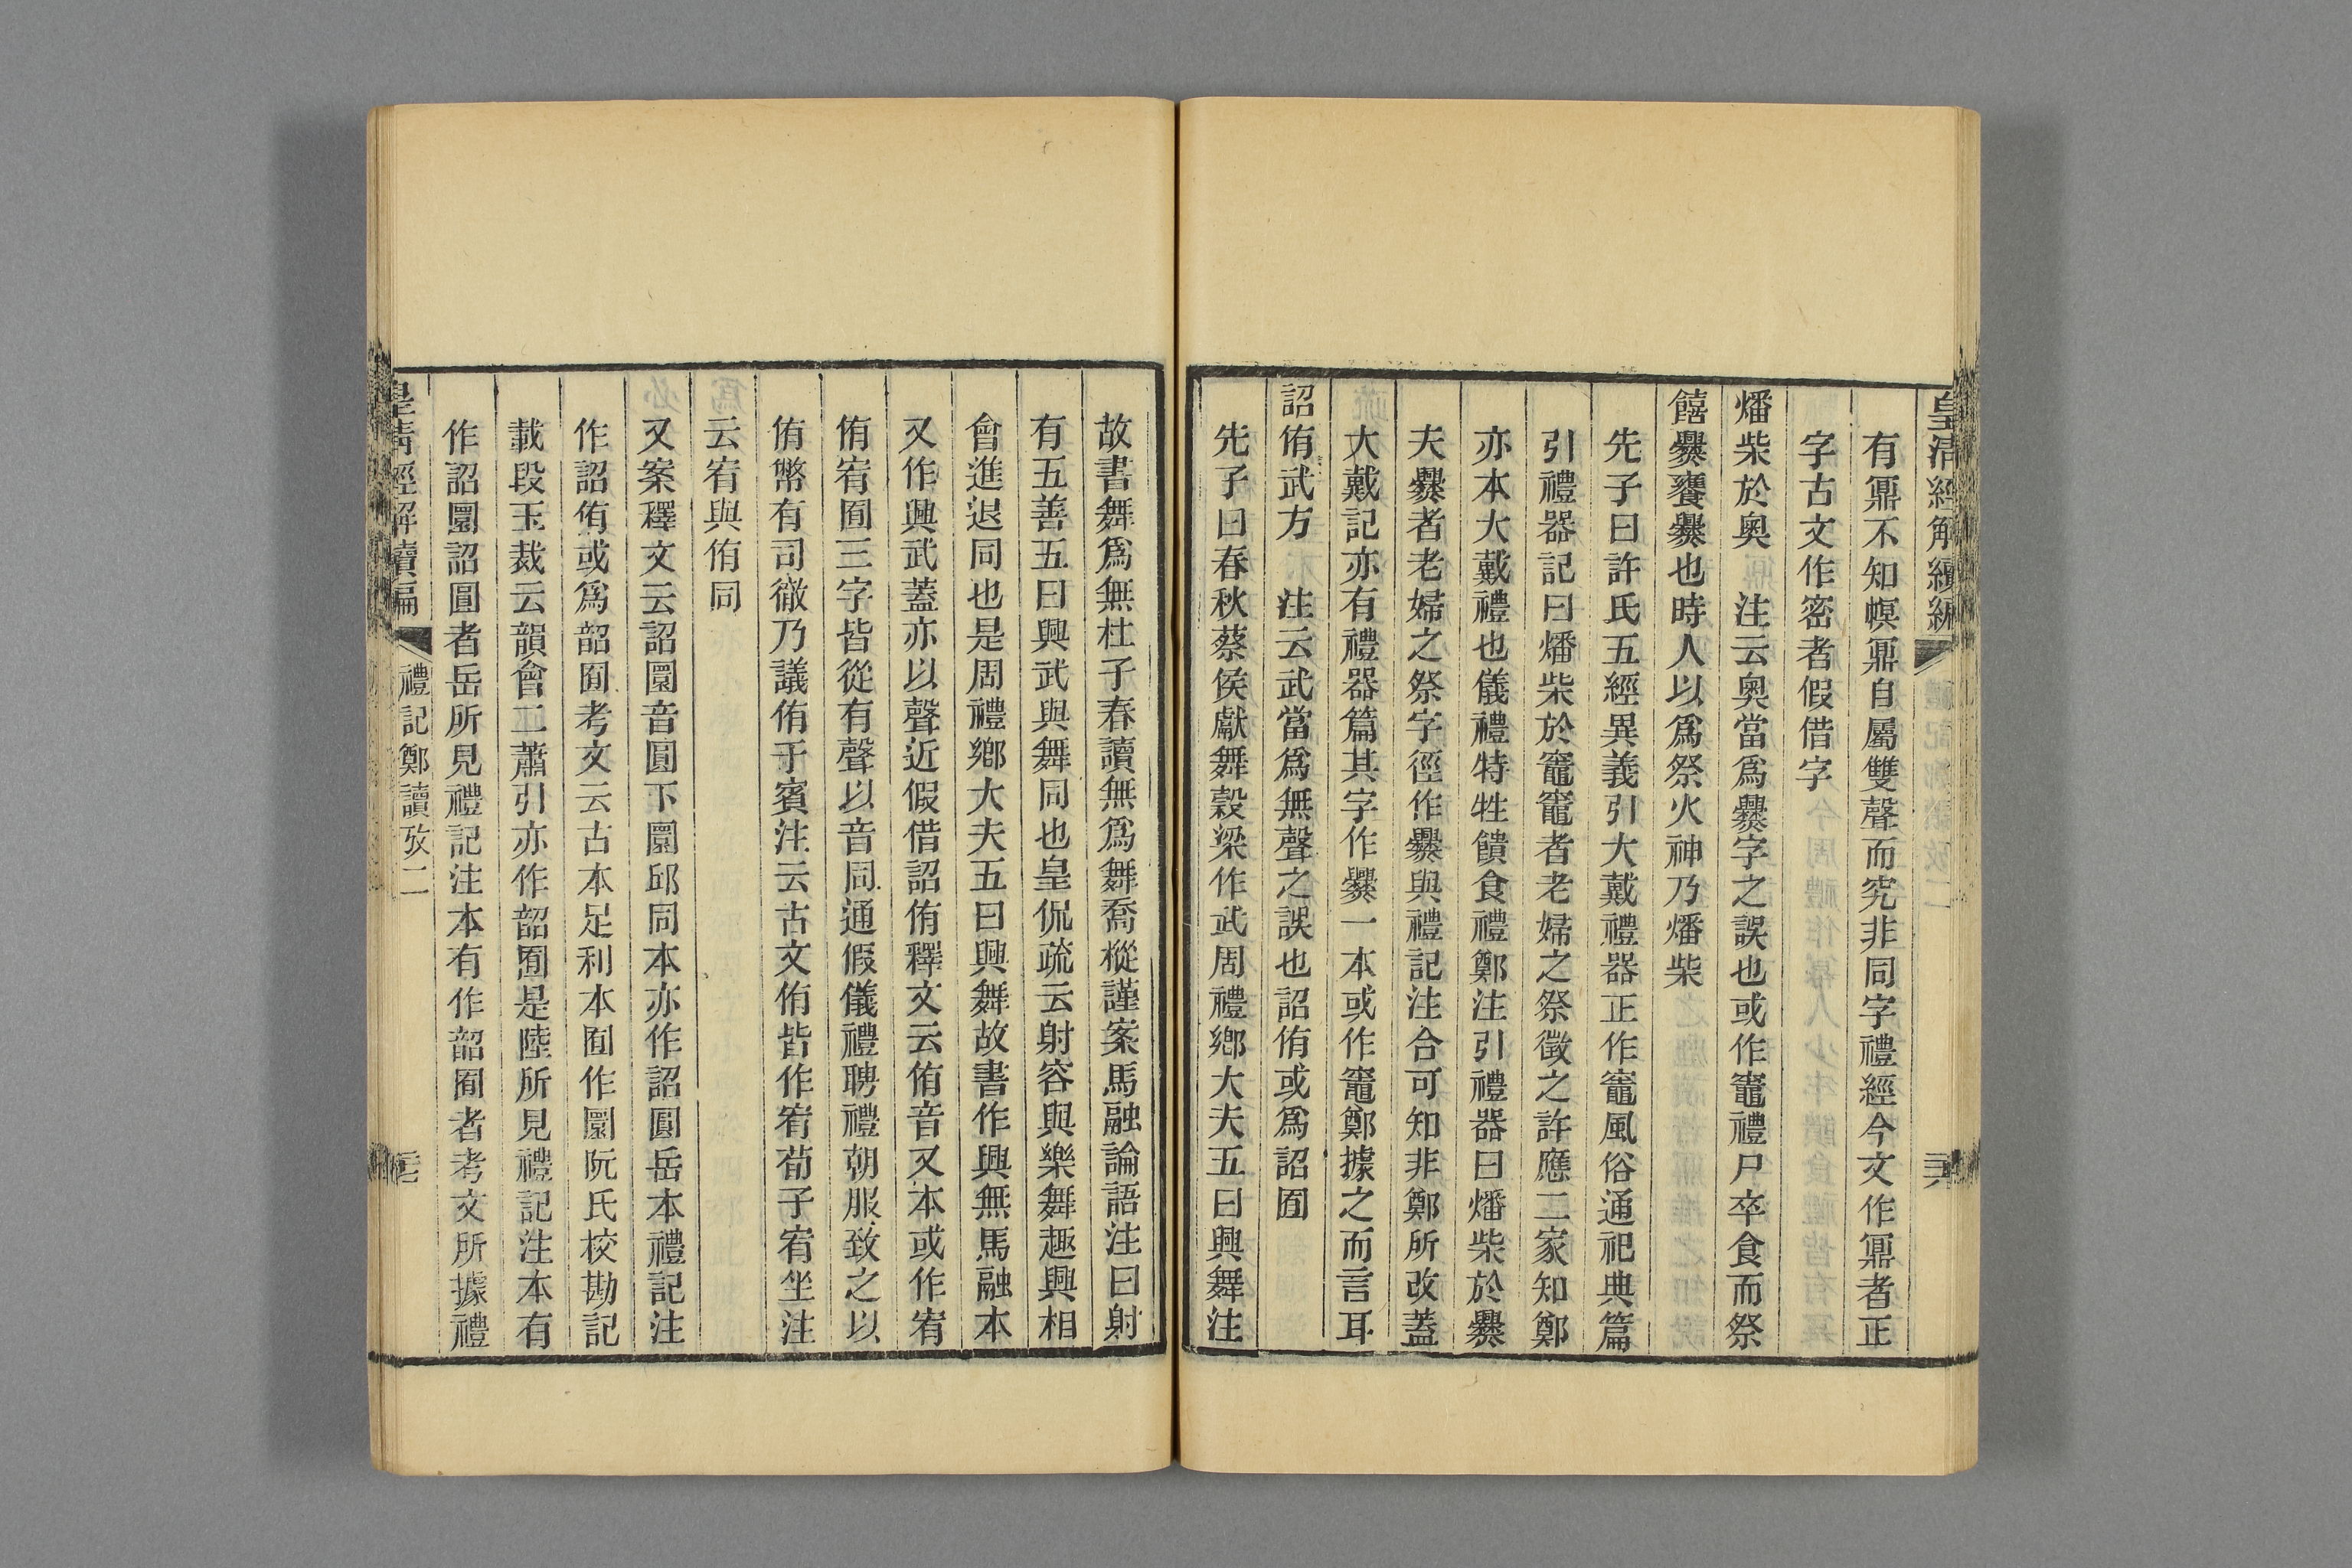 皇清經解續編
有鼏不知幎鼏自屬雙聲而究非同字禮經今文作鼏者正
字古文作密者假借字
燔柴於奧　注云奧當爲爨字之誤也或作竈禮尸卒食而祭
饎爨饔爨也時人以爲祭火神乃燔柴
先子曰許氏五經異義引大戴禮器正作竈風俗通祀典篇
引禮器記曰燔柴於竈竈者老婦之祭徵之許應二家知鄭
亦本大戴禮也儀禮特牲饋食禮鄭注引禮器曰燔柴於爨
夫爨者老婦之祭字徑作爨與禮記注合可知非鄭所改蓋
大戴記亦有禮器篇其字作爨一本或作竈鄭據之而言耳
詔侑武方　注云武當爲無聲之誤也詔侑或爲詔囿
先子曰春秋蔡侯獻舞穀梁作武周禮鄉大夫五曰興舞注
故書舞爲無杜子春讀無爲舞喬樅謹案馬融論語注曰射
有五善五曰興武與舞同也皇侃疏云射容與樂舞趣興相
會進退同也是周禮鄉大夫五曰興舞故書作興無馬融本
又作興武蓋亦以聲近假借詔侑釋文云侑音又本或作宥
侑宥囿三字皆從有聲以音同通假儀禮聘禮朝服致之以
侑幣有司徹乃議侑于賓注云古文侑皆作宥荀子宥坐注
云宥與侑同
又案釋文云詔圜音圓下圜邱同本亦作詔圓岳本禮記注
作詔侑或爲韶囿考文云古本足利本囿作圜阮氏校勘記
載段玉裁云韻會二蕭引亦作韶囿是陸所見禮記注本有
作詔圜詔圓者岳所見禮記注本有作韶囿者考文所據禮
皇清經解續編　禮記鄭讀攷二